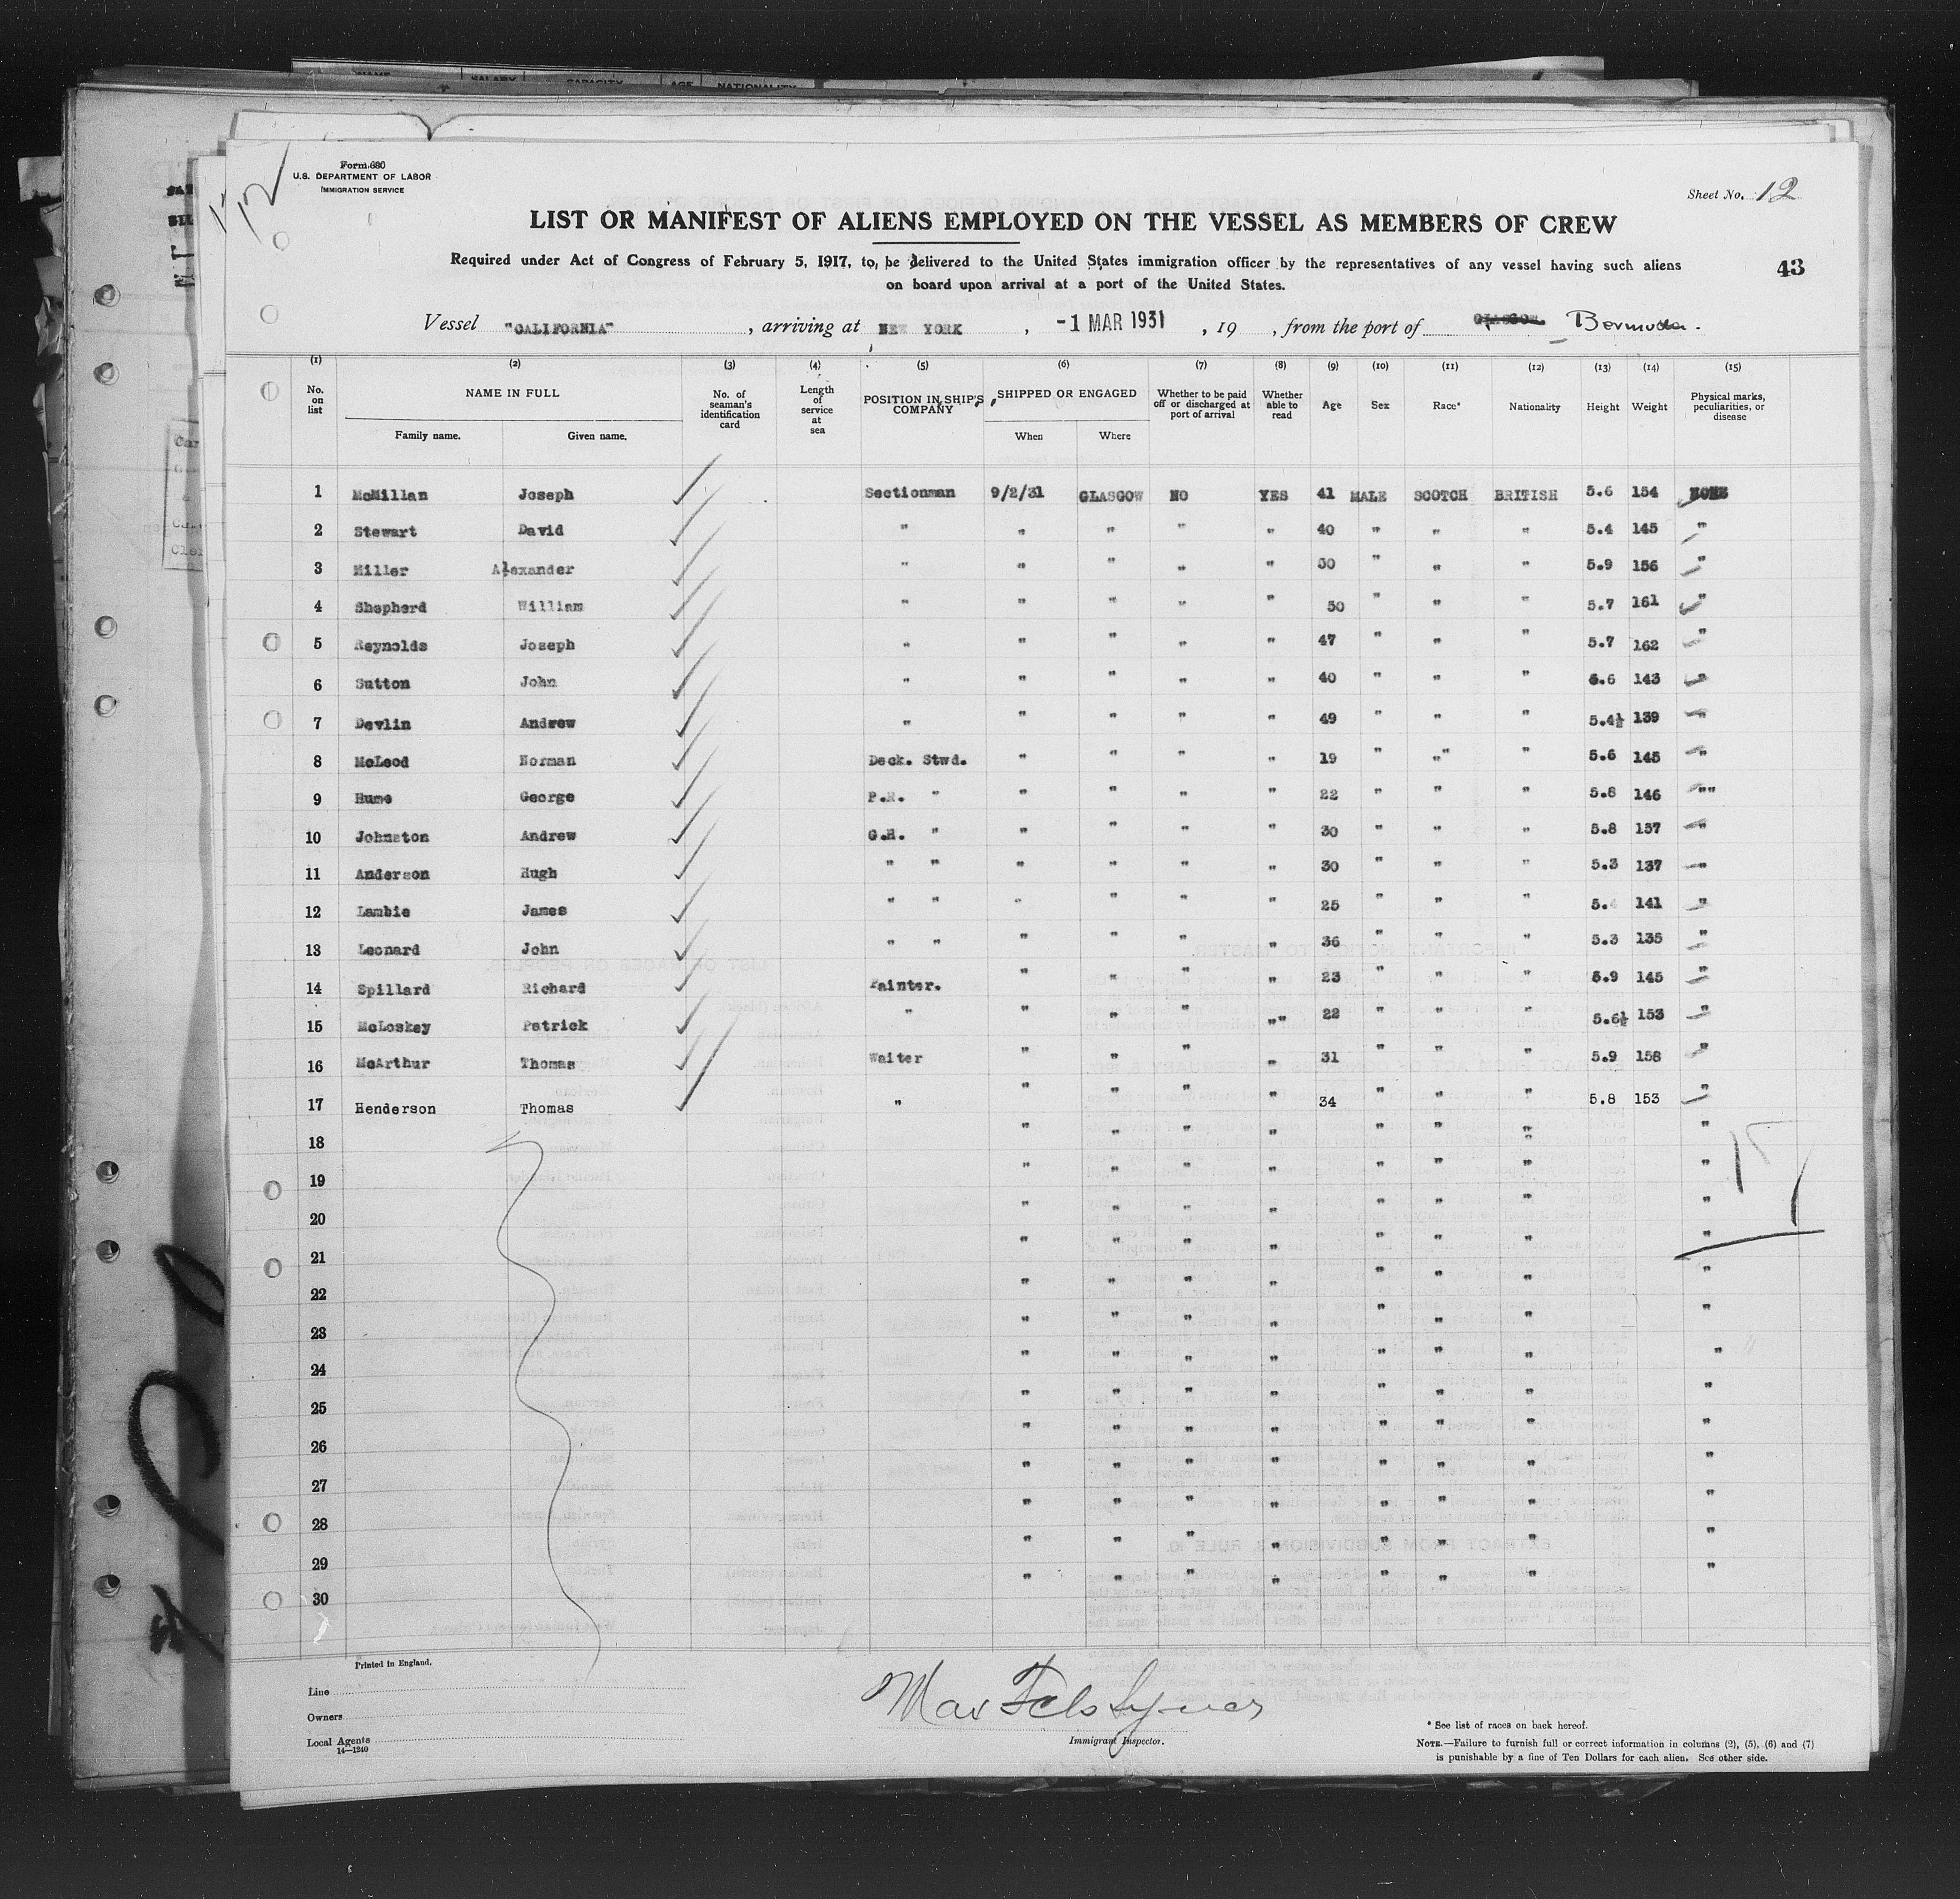 Form 680
U.S. DEPARTMENT OF LABOR
IMMIGRATION SERVICE
Sheet No. 12
LIST OR MANIFEST OF ALIENS EMPLOYED ON THE VESSEL AS MEMBERS OF CREW
Required under Act of Congress of February 5, 1917, to be delivered to the United States immigration officer by the representatives of any vessel having such aliens
on board upon arrival at a port of the United States.
43
Vessel "CALIFORNIA", arriving at NEW YORK, -1 MAR 1931, 19 , from the port of GLASGOW. Bermuda.
(1) (2) (3) (4) (5) (6) (7) (8) (9) (10) (11) (12) (13) (14) (15)
No. on list NAME IN FULL Family name. Given name. No. of seaman's identification card Length of service at sea POSITION IN SHIP'S COMPANY SHIPPED OR ENGAGED When Where Whether to be paid off or discharged at port of arrival Whether able to read Age Sex Race* Nationality Height Weight Physical marks, peculiarities, or disease
1 McMillan Joseph Sectionman 9/2/31 GLASGOW NO YES 41 MALE SCOTCH BRITISH 5.6 154 NONE
2 Stewart David " " " " " 40 " " " 5.4 145 "
3 Miller Alexander " " " " " 30 " " " 5.9 156 "
4 Shepherd William " " " " " 50 " " " 5.7 161 "
5 Reynolds Joseph " " " " " 47 " " " 5.7 162 "
6 Sutton John " " " " " 40 " " " 5.6 143 "
7 Devlin Andrew " " " " " 49 " " " 5.4½ 139 "
8 McLeod Norman Deck. Stwd. " " " " 19 " "" " 5.6 145 "
9 Hume George P.R. " " " " " 22 " " " 5.8 146 ""
10 Johnston Andrew G.H. " " " " " 30 " " " 5.8 157 "
11 Anderson Hugh " " " " " " 30 " " " 5.3 137 "
12 Lambie James " " " " " " 25 " " " 5.4 141 "
13 Leonard John " " " " " " 36 " " " 5.3 135 "
14 Spillard Richard Painter. " " " " 23 " " " 5.9 145 "
15 McLoskey Patrick " " " " "" 22 " " " 5.6½ 153 "
16 McArthur Thomas Waiter " " " " 31 " " " 5.9 158 "
17 Henderson Thomas " " " " " 34 " " " 5.8 153 "
18 " " " " " " " "
19 " " " " " " " "
20 " " " " " " " "
21 " " " " " " " "
22 " " " " " " " "
23 " " " " " " " "
24 " " " " " " " "
25 " " " " " " " "
26 " " " " " " " "
27 " " " " " " " "
28 " " " " " " " "
29 " " " " " " " "
30 " " " " " " "
17
Printed in England.
Line
Owners
Local Agents
14—1240
Immigrant Inspector.
* See list of races on back hereof.
NOTE.—Failure to furnish full or correct information in columns (2), (5), (6) and (7)
is punishable by a fine of Ten Dollars for each alien. See other side.